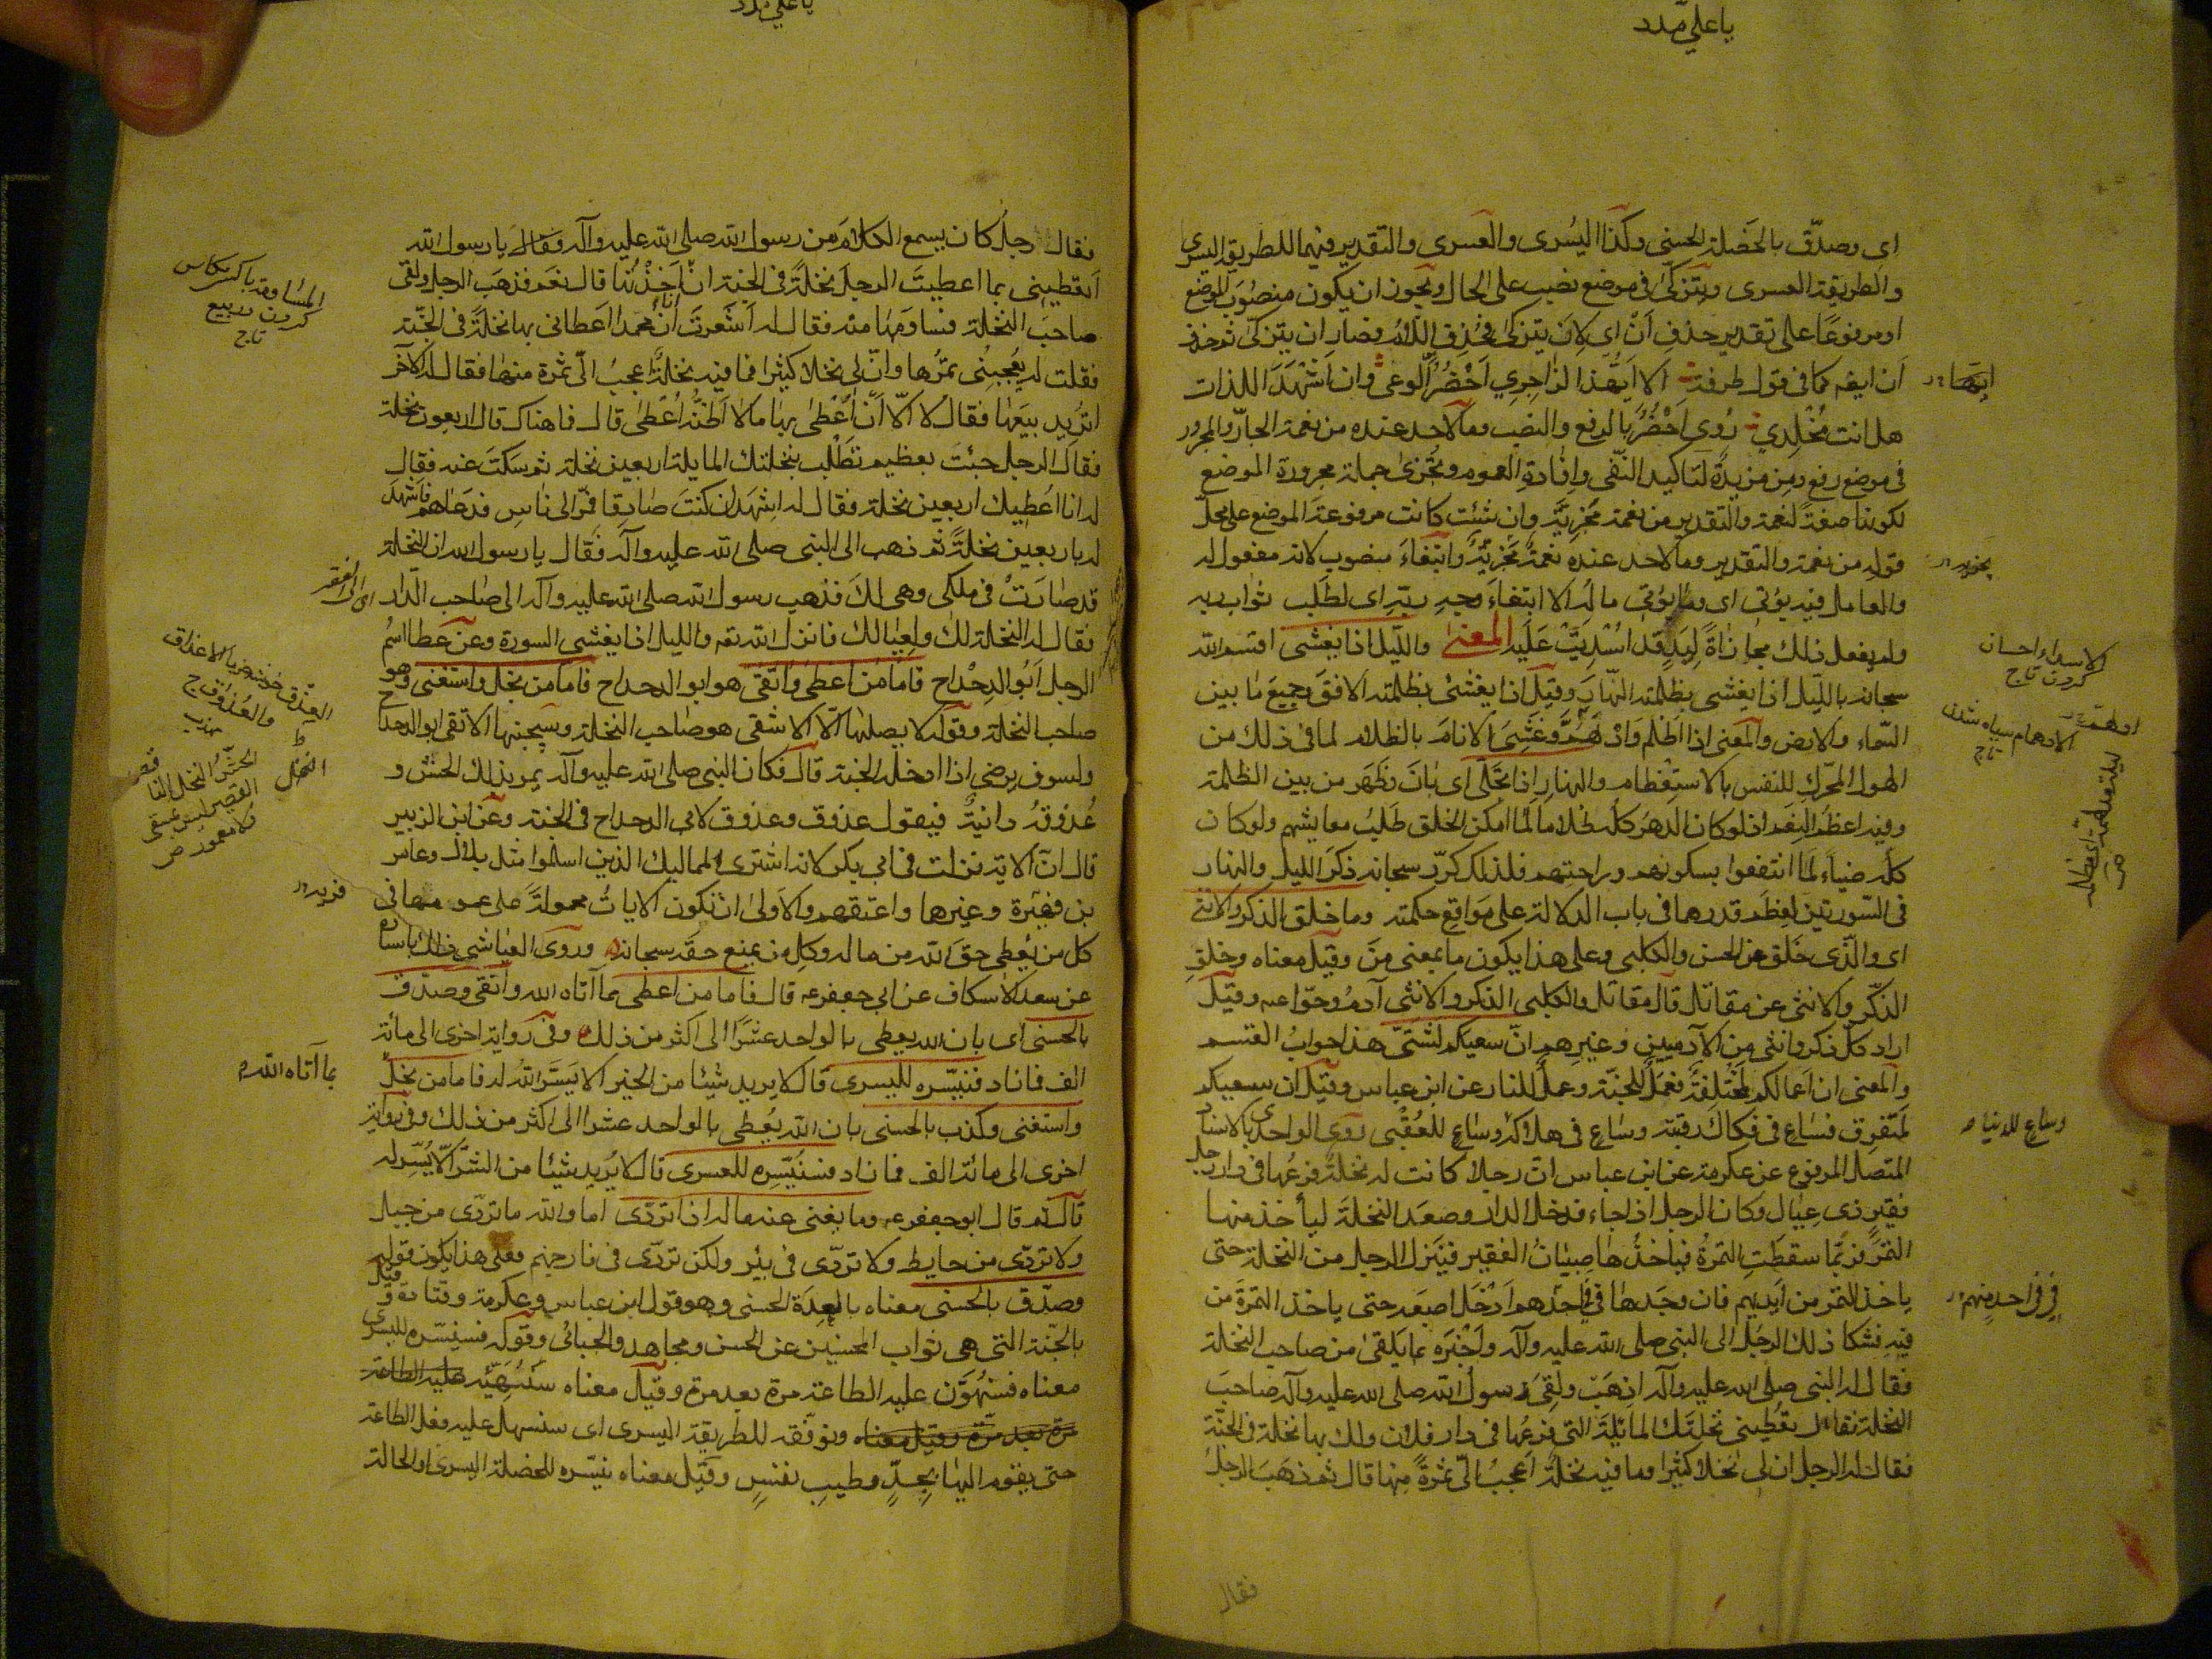 یا علی مدد
ای وصدّق بالخصلة الحسنی وکذا الیُسری والعسری والتقدیر فیهما للطریقة الیسری
والطریقة العسری ویتزکّی فی موضع نصب علی الحال ویجوز ان یکون منصوب الموضع
او مرفوعًا علی تقدیر حذف اَنْ ای لِاَن یتزکّی فحُذِف اللام فصار ان یتزکّی ثم حذف
أن ایضه کما فی قول طرفة الا ایّهذا الزاجری احضُرُ الوغی وان اشهد اللذات
ایّها
هل انت مُخْلِدی رُوی احْضُرُ بالرفع والنصب وما لاحد عنده من نعمة الجارّ والمجرور
فی موضع رفع ومِن مزیدةٌ لتاکید النّفی وافادةِ العموم وتُجْزیٰ جملة مجرورة الموضع
لکونها صفةً لنعمة والتقدیر من نعمة مَجْزِیَّة وان شئت کانت مرفوعة الموضع علی محلّ
قوله من نعمة والتقدیر وما لاحد عنده نعمةٌ مَجْزِیَّةٌ وابتغاءَ منصوب لانه مفعول له
والعامل فیه یؤتی ای وما یؤتی مالَه الا ابتغاءَ وجهِ ربّه ای لطَلَب ثواب ربه
ولم یفعل ذلک مجازاةً لِیَدٍ قد اُسْدِیَتْ عَلَیه المعنی واللّیل اذا یغشی اقسم الله
الاسداء احسان
کردن تاج
سبحانه باللّیل اذا یغشی بظلمته النهارَ وقیل اذا یغشی بظلمته الافق وجمیعَ ما بین
السّماء والارض والمعنی اذا اظلم وادْهَمَّ وغَشِیَ الانامَ بالظلام لما فی ذلک من
الادهمام سیاه شدن
تاج
الهول المحرّک للنفس بالاستعظام والنهارِ اذا تجلّی ای بانَ وظَهَر من بین الظلمة
وفیه اعظمُ النِعَم اذ لو کان الدهر کلّه ظلاما لما امکن الخلق طلبُ معایشهم ولو کان
کلّه ضیاءً لَمَا انتفعوا بسکونهم وراحتهم فلذلک کرّر سبحانه ذکرَ اللیل والنهار
فی السّورتین لعِظَم قدرهما فی باب الدلالة علی مَواقع حکمته وما خلق الذکر والانثی
ای والّذی خَلَق عن الحسن والکلبی وعلی هذا یکون ما بمعنی مَن وقیل معناه وخلقِ
الذّکر والانثی عن مقاتل قال مقاتل والکلبی الذکر والانثی آدمُ وحوّا عه وقیل
اراد کلّ ذکر وانثی من الآدمیین وغیرهم انّ سعیکم لشتّی هذا جوابُ القسم
والمعنی ان اعمالکم لَمُخْتلِفةٌ فعَمَلٌ للجنّة وعملٌ للنار عن ابن عباس وقیل ان سعیکم
لَمتفرق فساعٍ فی فکاک رقبته وساعٍ فی هلاکه وساعٍ للعُقْبی رَوی الواحدی بالاسناد
وساعٍ للدنیا
المتصل المرفوع عن عکرمة عن ابن عباس انّ رجلا کانت له نخلةٌ فرعُها فی دار رجل
فقیر ذی عِیال وکان الرجل اذا جاء فدخل الدار وصَعِد النخلةَ لیأخذ منها
التمرَ فربّما سقطَتِ التمرةُ فیاخذُها صِبیانُ الفقیر فیَنزل الرجل من النخلة حتی
یاخذ التمر من اَیدیهم فان وجَدها فی فی احدهم اَدْخَل اصبعه حتی یاخذ التمرةَ من
فی فی احدٍ منهم
فیه فشکا ذلک الرجُل الی النبی صلی الله علیه وآله واَخْبَره بما یَلقیٰ من صاحب النخلة
فقال له النبی صلی الله علیه وآله اذهَبْ ولَقِیَ رسول الله صلی الله علیه وآله صاحبَ
النخلة فقال تُعْطینی نخلتَک المائلةَ التی فرعُها فی دار فلان ولک بها نخلة فی الجنّة
فقال له الرجل ان لی نخلا کثیرا وما فیه نخلةٌ اَعجبُ الیّ ثمرةً منها قال ثم ذهَبَ الرجلُ
فقال
یا علی مدد
فقال رجلٌ کان یسمع الکلامَ من رسول الله صلی الله علیه وآله فقال یا رسول الله
اَتعطینی بما اعطیتَ الرجلَ نخلةً فی الجنة ان اَخَذْتُها قال نعم فذهَب الرجل ولَقِیَ
صاحبَ النخلة فساوَمَها منه فقال له اَشَعرتَ انّ محمدا اَعطانی بها نخلةً فی الجنّة
کردن در بیع
تاج
فقلت له یُعْجِبُنی تمرُها وانّ لی نخلا کثیرا فما فیه نخلةٌ اعجبُ الیّ ثمرة منها فقال له الآخَر
اتُرید بیعَها فقال لا الّا اَنْ اُعْطیٰ بها مالا اَظنّه اُعْطیٰ قال فما مناک قال اربعون نخلة
فقال الرجل جئتَ بعظیم تَطْلُب بنخلتک المایلة اربعین نخلة ثم سکتَ عنه فقال
له انا اُعطیک اربعین نخلة فقال له اِشهَد ان کنتَ صادقا فمرّ الی ناس فدعاهم فاَشهَدَ
له باربعین نخلةً ثم ذهب الی النبی صلی الله علیه وآله فقال یا رسول الله ان النخلة
قد صارَتْ فی ملکی وهی لکَ فذهب رسول الله صلی الله علیه وآله الی صاحب الدّار
ای الی الفقیر
فقال له النخلة لک ولعیالک فانزل الله تعه واللیل اذا یغشی السورة وعن عطا اسمُ
الرجل اَبُو الدِحْداح فامّا من اعطی واتّقی هو ابو الدحداح فاما من بخل واستغنی وهو
صاحب النخلة وقوله لا یصلیها الّا الاشقی هو صاحب النخلة وسیجنبها الاتقی ابو الدحداح
ولسوف یرضی اذا ادخله الجنة قال فکان النبی صلی الله علیه وآله یمر بذلک الحَشّ و
عُذوقُه دانیةٌ فیقول عذوق وعذوق لابی الدحداح فی الجنة وعن ابن الزبیر
قال انّ الایة نزلت فی ابی بکر لانه اشتری الممالیک الذین اسلموا مثل بلال وعامر
بن فهیرة وغیرها واعتقهم والاَولیٰ ان تکون الایاتُ محمولةً علی عمومها فی
کل من یُعطی حقَ الله من ماله وکل من یمنع حقَه سبحانه ورَوی العیاشی ذلک باسناده
عن سعد الاسکاف عن ابی جعفر عه قال فاما من اعطی مما آتاه الله واتقی وصدّق
بالحسنی ای بان الله یعطی بالواحد عشرًا الی اکثر من ذلک وفی روایة اخری الی مائة
الف فما زاد فسنیسّره للیسری قال لا یرید شیئا من الخیر الا یَسَّر اللهُ له فاما من بخل
بما آتاه الله
واستغنی وکذب بالحسنی بان الله یُعْطی بالواحد عشرا الی اکثر من ذلک وفی روایة
اخری الی مائة الف فما زاد فسنُیَسّره للعسری قال لا یُرید شیئا من الشرّ الّا یُسّر له
قال ثم قال ابو جعفر عه وما یغنی عنه ماله اذا تردّی اما والله ما تردّی من جبل
ولا تردّی من حایط ولا تردّی فی بئر ولکن تردّی فی نار جهنم فعلی هذا یکون قوله
وصدّق بالحسنی معناه بالعِدَة الحسنی وهو قول ابن عباس وعکرمة وقتادة وقیل
بالجنّة التی هی ثواب المحسنین عن الحسن ومجاهد والجبائی وقوله فسنیسّره للیسری
معناه فسنُهَوِّن علیه الطاعة مرة بعد مرة وقیل معناه سنُهَیِّئه علیه الطاعة
مرة بعد مرة وقیل معناه ونوفّقه للطریقة الیسری ای سنسهل علیه فعل الطاعة
حتی یقوم الیها بِجِدٍّ وطیبِ نفسٍ وقیل معناه نیسّره للخصلة الیسری والحالة